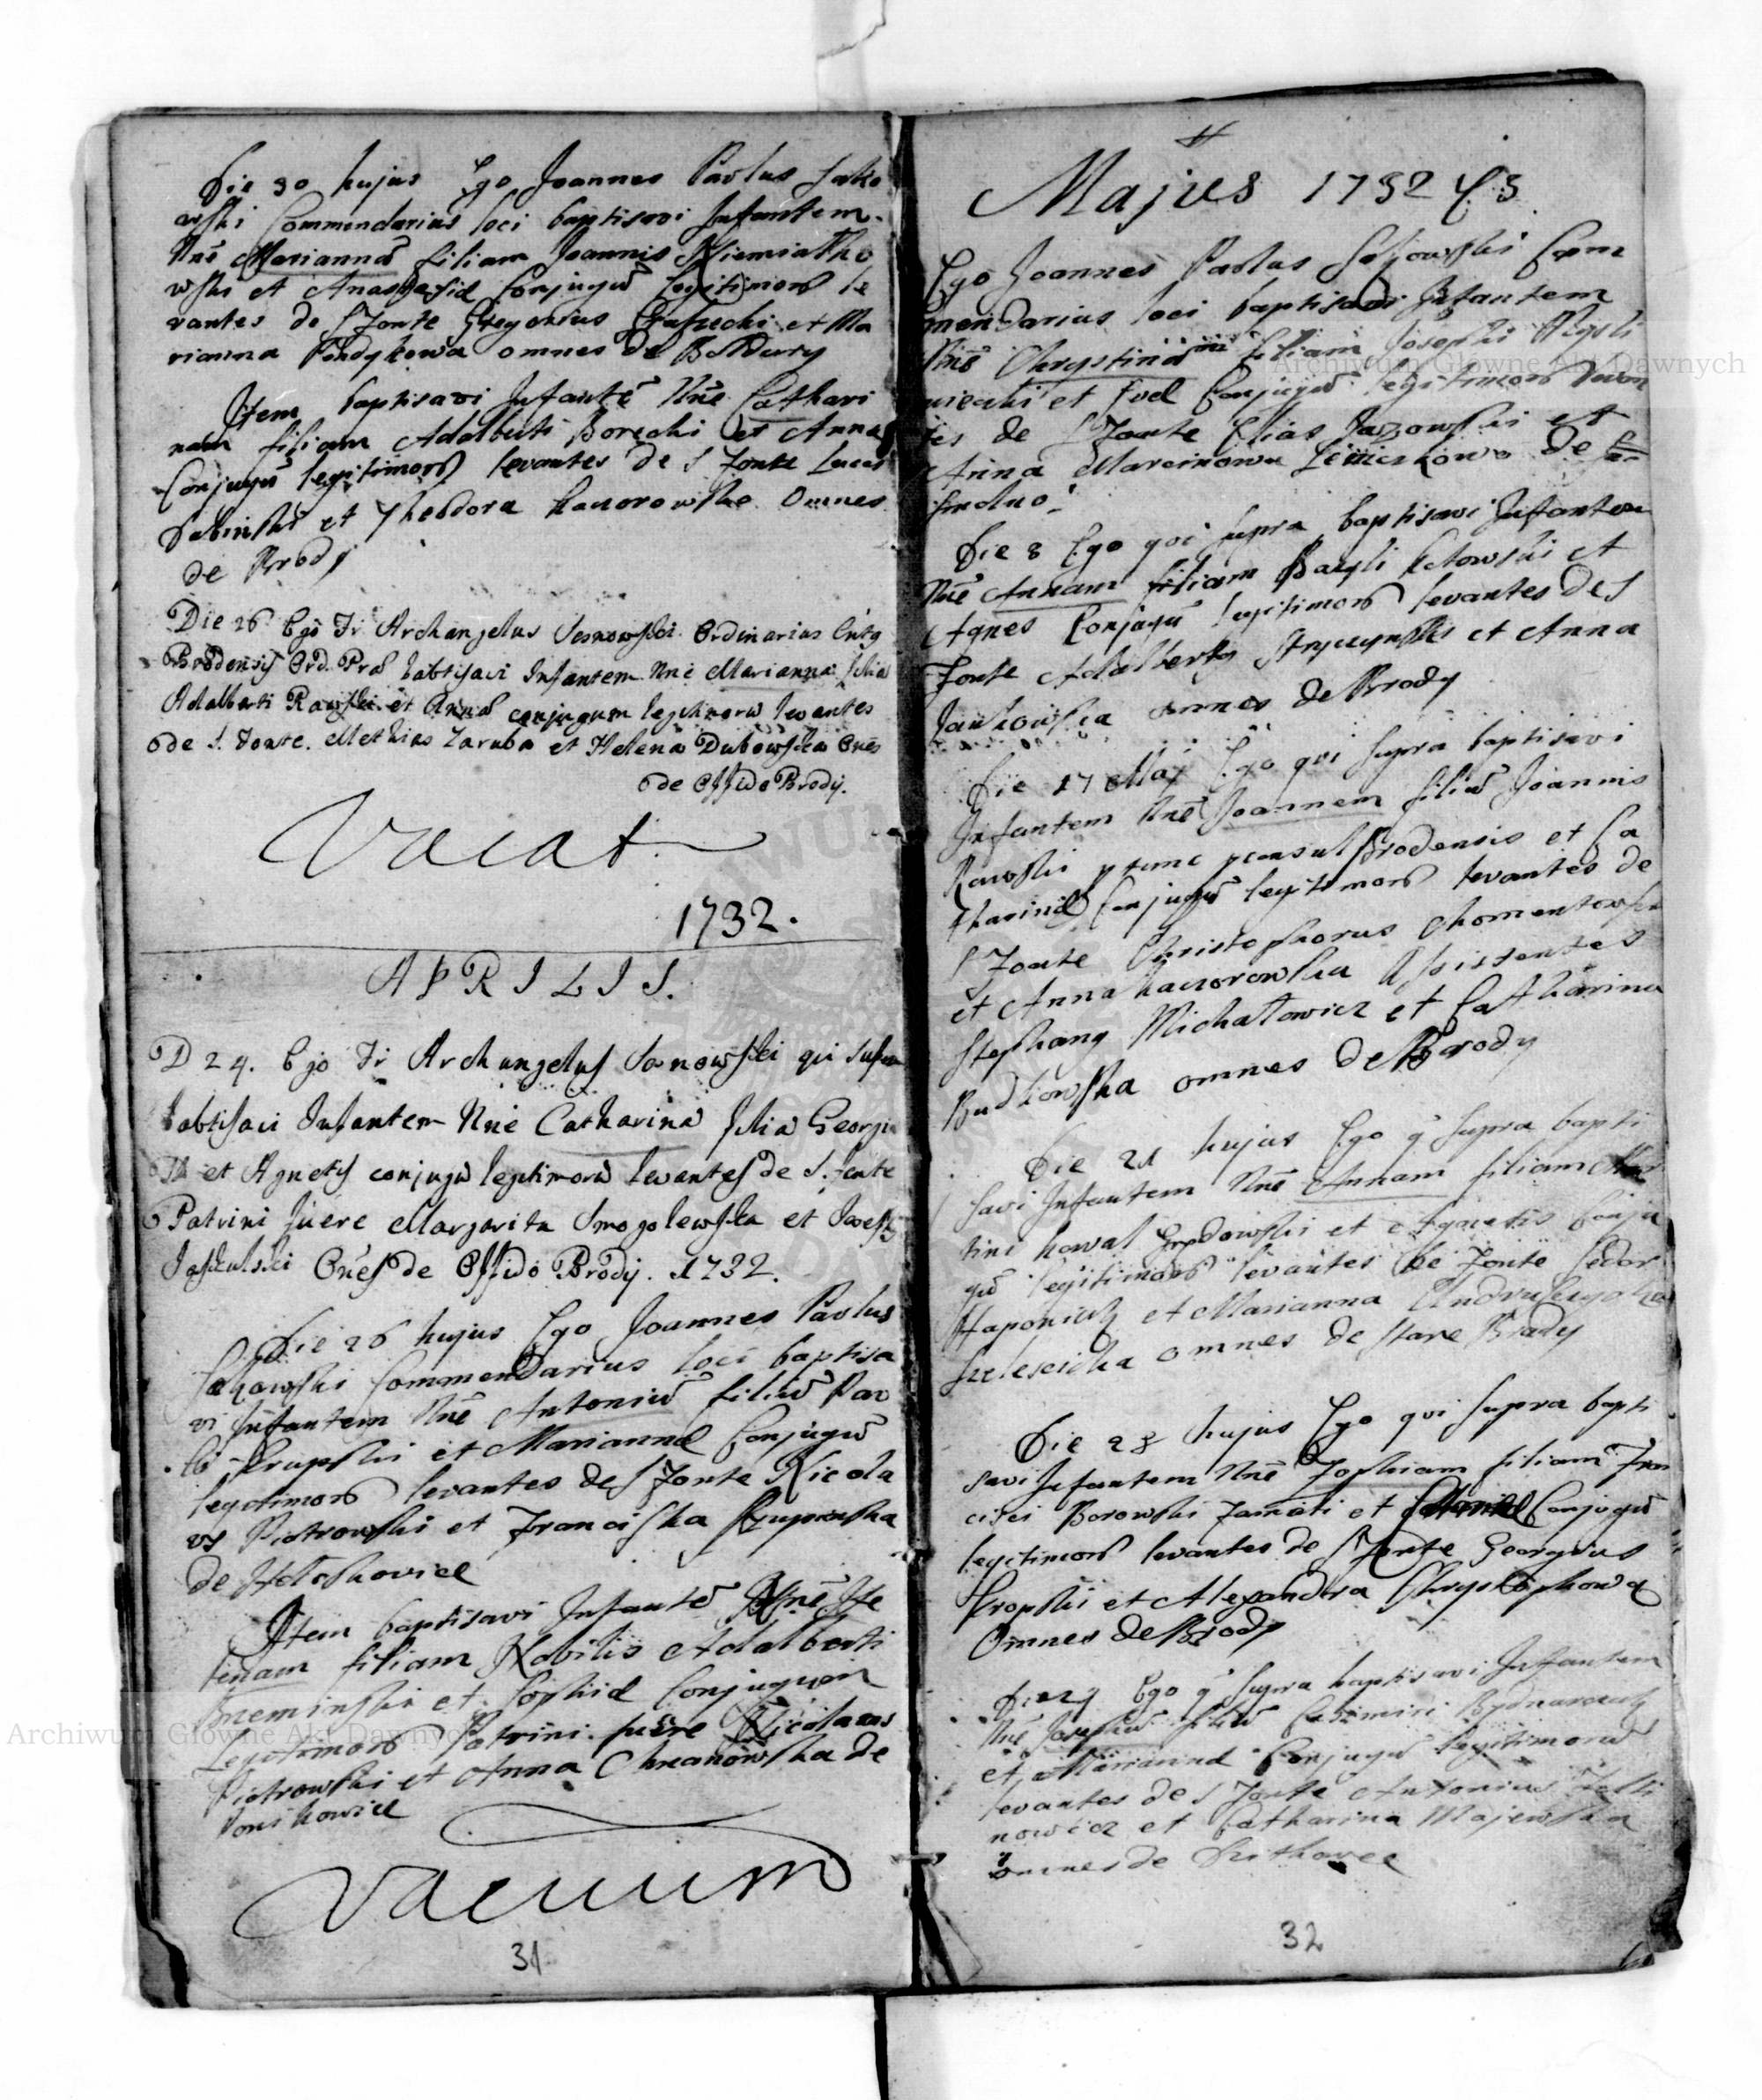 Die 30 hujus Ego Joannes Paulus Sako
wski Commendarius loci baptisavi Infantem
Nnē Mariannā filiam Joannis Niemiatko
wski et Conjugū legitimorū le
vantes de S Fonte Gregorius et Ma
rianna omnes de Boldury
Item baptisavi Infantē Nnē Cathari
nam filiam Adalberti Borecki et Annæ
Conjugū legitimorū levantes de S Fonte Lucas
Dubinski et Theodora Kaczorowska Omnes
de Brody
Die 26 Ego Fr Archangelus Ordinarius
Brodensis Ord. Præd babtisavi Infantem Nnē Marianna filiā
Adalberti Rawski et Annæ conjugum legitimorū levantes
de S. Fonte. Mathias Zaruba et Helena Dubowska Onēs
de Oppido Brody.
Vacat
1732.
APRILIS.
D 24. Ego Fr Archangelus qui supra
babtisavi Infantem Nnē Catharinā filiā Georgii
et Agnetis conjugū legitimorū levantes de S. Fonte
Patrini fuere Margarita Smogolewska et
Onēs de Oppido Brody. 1732.
Die 26 hujus Ego Joannes Paulus
Sakowski Commendarius loci baptisa
vi Infantem Nnē Antoniū filiū Pau
li Krupski et Mariannæ Conjugū
legitimorū levantes de S Fonte Nicola
us Piotrowski et Franciska Krupinska
de
Item baptisavi Infantē Nnē He
lenam filiam Nobilis Adalberti
et Sophiæ Conjugum
Legitimorū Patrini fuere Nicolaus
Piotrowski et Anna Chrzanowska de
Ponikowice
Vacuum
31
Majus 1732 D. 3
Ego Joannes Paulus Sakowski Com
mendarius loci baptisavi Infantem
Nnē Chrystinā filiam Josephi
et Evæ Conjugū legitimorū levan
tes de S Fonte Elias et
Anna Marcinowa de
Die 8 Ego qui supra baptisavi Infantem
Nnē Annam filiam Bazyli et
Agnes Conjugū legitimorū levantes de S
Fonte Adalbertus et Anna
Jankowska omnes de Brody
Die 17 Maj Ego qui supra baptisavi
Infantem Nnē Joannem filiū Joannis
Rawski p tunc pconsul Brodensis et Ca
tharinæ Conjugū legitimorū levantes de
S Fonte Christophorus Chomentowski
et Anna Kaczorowska Assistentes
Stephanus Michałowicz et Catharina
Rudkowska omnes de Brody
Die 21 hujus Ego q supra bapti
savi Infantem Nnē Annam filiam Mar
tini Kowal et Agnetis Conju
gū legitimorū levantes de Fonte Fedor
et Marianna
omnes de Stare Brody
Die 28 hujus Ego qui supra bapti
savi Infantem Nnē Zophiam filiam Fran
cisci Borowski et Conjugū
legitimorū levantes de S Fonte Georgius
Kropski et Alexandra Chrystophowa
Omnes de Brody
Ego q supra baptisavi Infantem
Nnē Josephū filiū Casimiri
et Mariannæ Conjugū legitimorū
levantes de S Fonte Antonius
nowicz et Catharina Majewska
omnes de
32
Archiwum Główne Akt Dawnych
Archiwum Główne Akt Dawnych